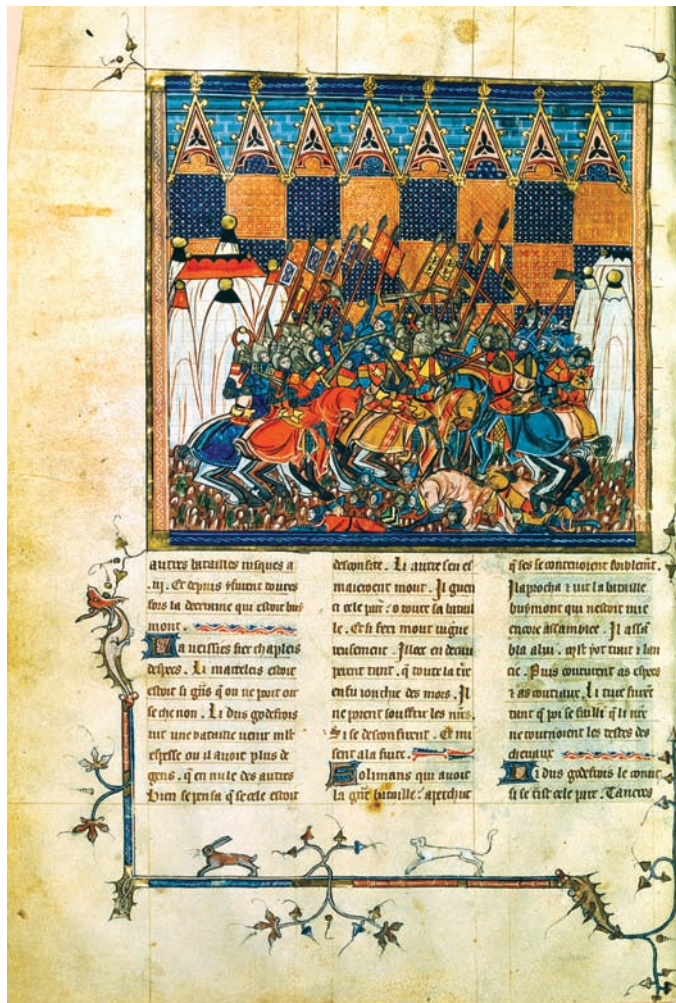 autres batailles iusques a
.iij. Et depuis furent toutes
fois la derraine qui estoit buy
mont.
La ueissies fier chapleis
despees. Li marteleis estoit
estoit si gñs q̃ on ne pooit oir
se che non. Li dus godefrois
uit une bataille uenir mlt
espesse ou il auoit plus de
gens. q̃ en nule des autres
bien se pensa q̃ se cele estoit
desconfite. Li autre sen es
maieroent mout. Il guen
ci cele part: o toute sa batail
le. Et si feri mout uigue
reusement. Illoec en decau
perent tant. q̃ toute la tre
en fu ionchie des mors. Il
ne porent souffrir les nr̃es.
Si se desconfirent. Et mi
sent a la fuite.
Solimans qui auoit
la gñt bataille: aperchut
q̃ ses se contenoient foiblem̃t.
Il aprocha & uit la bataille
buymont qui nestoit mie
encore assamblee. Il assã
bla a lui. tant & lan
cie. Puis coururent as espees
& as coutiaux. Li turc furẽt
tant q̃ poi se failli q̃ li nr̃e
ne tournoient les testes des
cheuaux
Li dus godefrois le connut
si se fist cele part. Tancres